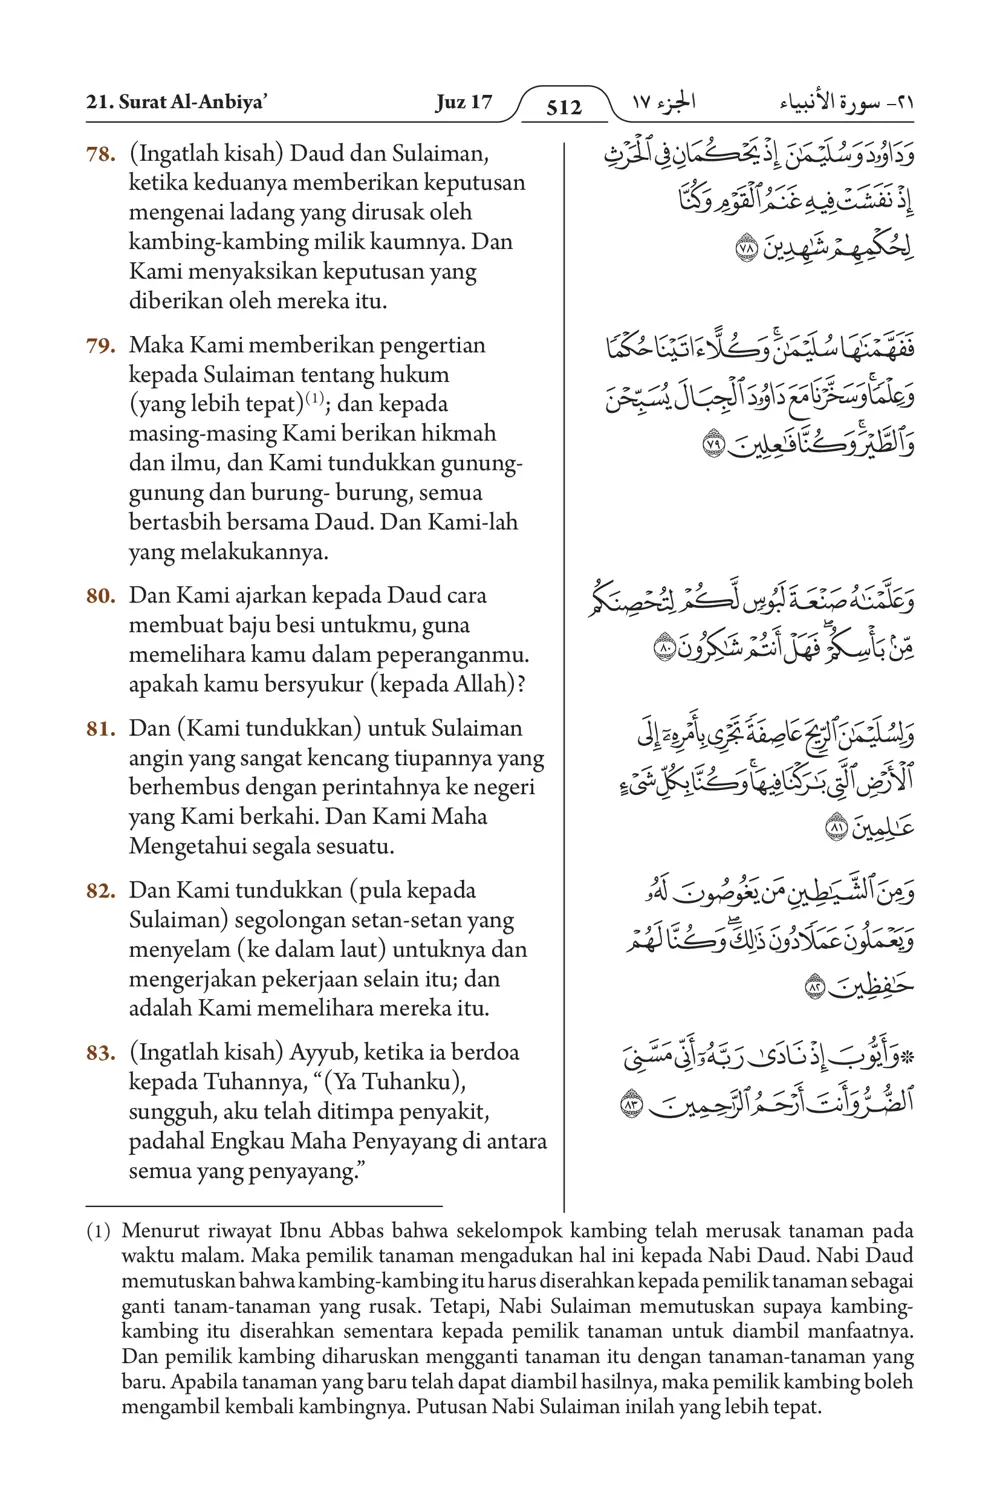 21. Surat Al-Anbiya’ Juz 17 512 الجزء ١٧ ٢١- سورة الأنبياء
78. (Ingatlah kisah) Daud dan Sulaiman,
ketika keduanya memberikan keputusan
mengenai ladang yang dirusak oleh
kambing-kambing milik kaumnya. Dan
Kami menyaksikan keputusan yang
diberikan oleh mereka itu.
وَدَاوُۥدَ وَسُلَيْمَٰنَ إِذْ يَحْكُمَانِ فِى ٱلْحَرْثِ
إِذْ نَفَشَتْ فِيهِ غَنَمُ ٱلْقَوْمِ وَكُنَّا
لِحُكْمِهِمْ شَٰهِدِينَ ٧٨
79. Maka Kami memberikan pengertian
kepada Sulaiman tentang hukum
(yang lebih tepat)(1); dan kepada
masing-masing Kami berikan hikmah
dan ilmu, dan Kami tundukkan gunung-
gunung dan burung- burung, semua
bertasbih bersama Daud. Dan Kami-lah
yang melakukannya.
فَفَهَّمْنَٰهَا سُلَيْمَٰنَ ۚ وَكُلًّا ءَاتَيْنَا حُكْمًا
وَعِلْمًا ۚ وَسَخَّرْنَا مَعَ دَاوُۥدَ ٱلْجِبَالَ يُسَبِّحْنَ
وَٱلطَّيْرَ ۚ وَكُنَّا فَٰعِلِينَ ٧٩
80. Dan Kami ajarkan kepada Daud cara
membuat baju besi untukmu, guna
memelihara kamu dalam peperanganmu.
apakah kamu bersyukur (kepada Allah)?
وَعَلَّمْنَٰهُ صَنْعَةَ لَبُوسٍ لَّكُمْ لِتُحْصِنَكُم
مِّنۢ بَأْسِكُمْ ۖ فَهَلْ أَنتُمْ شَٰكِرُونَ ٨٠
81. Dan (Kami tundukkan) untuk Sulaiman
angin yang sangat kencang tiupannya yang
berhembus dengan perintahnya ke negeri
yang Kami berkahi. Dan Kami Maha
Mengetahui segala sesuatu.
وَلِسُلَيْمَٰنَ ٱلرِّيحَ عَاصِفَةً تَجْرِى بِأَمْرِهِۦٓ إِلَى
ٱلْأَرْضِ ٱلَّتِى بَٰرَكْنَا فِيهَا ۚ وَكُنَّا بِكُلِّ شَىْءٍ
عَٰلِمِينَ ٨١
82. Dan Kami tundukkan (pula kepada
Sulaiman) segolongan setan-setan yang
menyelam (ke dalam laut) untuknya dan
mengerjakan pekerjaan selain itu; dan
adalah Kami memelihara mereka itu.
وَمِنَ ٱلشَّيَٰطِينِ مَن يَغُوصُونَ لَهُۥ
وَيَعْمَلُونَ عَمَلًا دُونَ ذَٰلِكَ ۖ وَكُنَّا لَهُمْ
حَٰفِظِينَ ٨٢
83. (Ingatlah kisah) Ayyub, ketika ia berdoa
kepada Tuhannya, “(Ya Tuhanku),
sungguh, aku telah ditimpa penyakit,
padahal Engkau Maha Penyayang di antara
semua yang penyayang.”
۞ وَأَيُّوبَ إِذْ نَادَىٰ رَبَّهُۥٓ أَنِّى مَسَّنِىَ
ٱلضُّرُّ وَأَنتَ أَرْحَمُ ٱلرَّٰحِمِينَ ٨٣
(1) Menurut riwayat Ibnu Abbas bahwa sekelompok kambing telah merusak tanaman pada
waktu malam. Maka pemilik tanaman mengadukan hal ini kepada Nabi Daud. Nabi Daud
memutuskan bahwa kambing-kambing itu harus diserahkan kepada pemilik tanaman sebagai
ganti tanam-tanaman yang rusak. Tetapi, Nabi Sulaiman memutuskan supaya kambing-
kambing itu diserahkan sementara kepada pemilik tanaman untuk diambil manfaatnya.
Dan pemilik kambing diharuskan mengganti tanaman itu dengan tanaman-tanaman yang
baru. Apabila tanaman yang baru telah dapat diambil hasilnya, maka pemilik kambing boleh
mengambil kembali kambingnya. Putusan Nabi Sulaiman inilah yang lebih tepat.